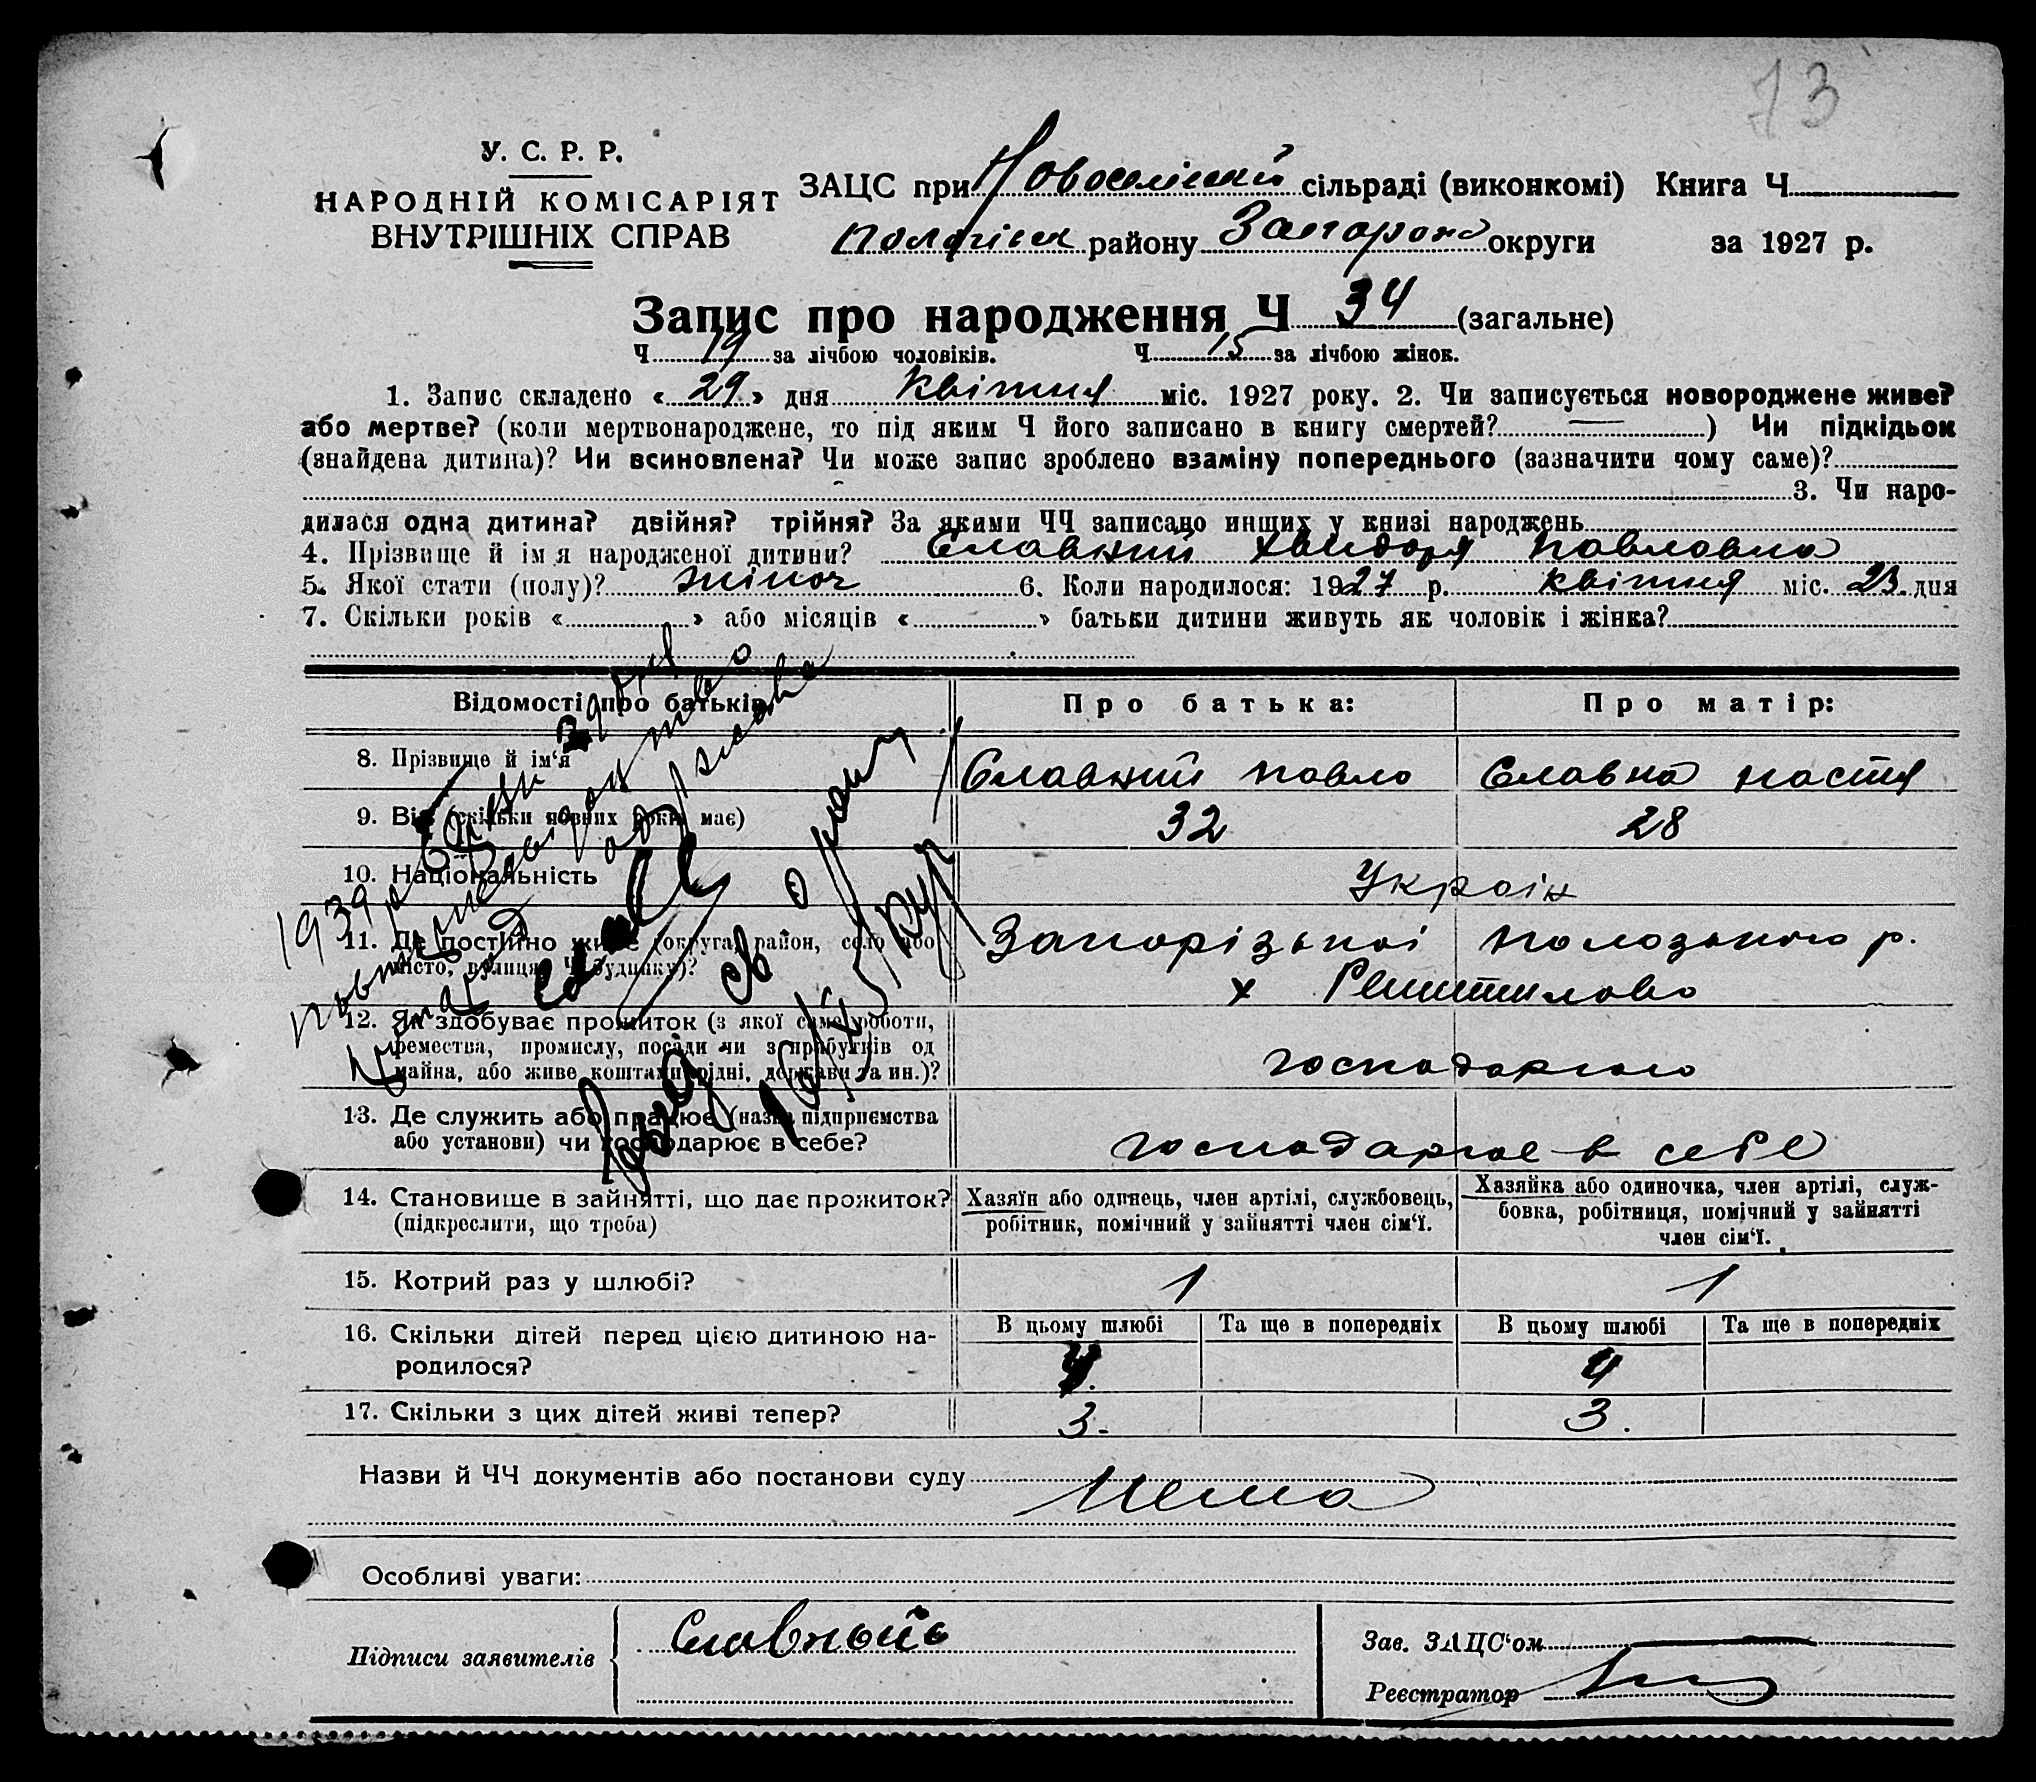 73
У. С. Р. Р.
НАРОДНІЙ КОМІСАРІЯТ
ВНУТРІШНІХ СПРАВ
ЗАЦС при Новоселиський сільраді (виконкомі) Книга Ч.
району Запорожс округи за 1927 р.
Запис про народження Ч 34 (загальне)
Ч 19 за лічбою чоловіків. Ч 15 за лічбою жінок.
1. Запис складено « 29 » дня квітня міс. 1927 року. 2. Чи записується новороджене живе?
або мертве? (коли мертвонароджене, то під яким Ч його записано в книгу смертей? — ) Чи підкідьок
(знайдена дитина)? Чи всиновлена? Чи може запис зроблено взаміну попереднього (зазначити чому саме)?
3. Чи наро-
дилася одна дитина? двійня? трійня? За якими ЧЧ записано инших у книзі народжень
4. Прізвище й ім'я народженої дитини? Славний Хвидоря Павловна
5. Якої стати (полу)? жіноч 6. Коли народилося: 1927 р. квітня міс. 23 дня
7. Скільки років « » або місяців « » батьки дитини живуть як чоловік і жінка?
Відомості про батьків
Про батька:
Про матір:
8. Прізвище й ім'я
Славний Павло
Славна Настя
9. Вік (скільки повних років має)
32
28
10. Національність
Україн
11. Де постійно живе (округа, район, село або
місто, вулиця, Ч будинку)?
Запорізької Пологського р.
х Решитилово
12. Як здобуває прожиток (з якої саме роботи,
ремества, промислу, посади чи з прибутків од
майна, або живе коштами рідні, держави та ин.)?
господарского
13. Де служить або працює (назва підприємства
або установи) чи господарює в себе?
господарює в себе
14. Становище в зайнятті, що дає прожиток?
(підкреслити, що треба)
Хазяїн або одинець, член артілі, службовець,
робітник, помічний у зайнятті член сім'ї.
Хазяйка або одиночка, член артілі, служ-
бовка, робітниця, помічний у зайнятті
член сім'ї.
15. Котрий раз у шлюбі?
1
1
16. Скільки дітей перед цією дитиною на-
родилося?
В цьому шлюбі
Та ще в попередніх
В цьому шлюбі
Та ще в попередніх
4
4
17. Скільки з цих дітей живі тепер?
3.
3.
1939 р
Назви й ЧЧ документів або постанови суду Нема
Особливі уваги:
Підписи заявителів
Зав. ЗАЦС'ом
Реєстратор